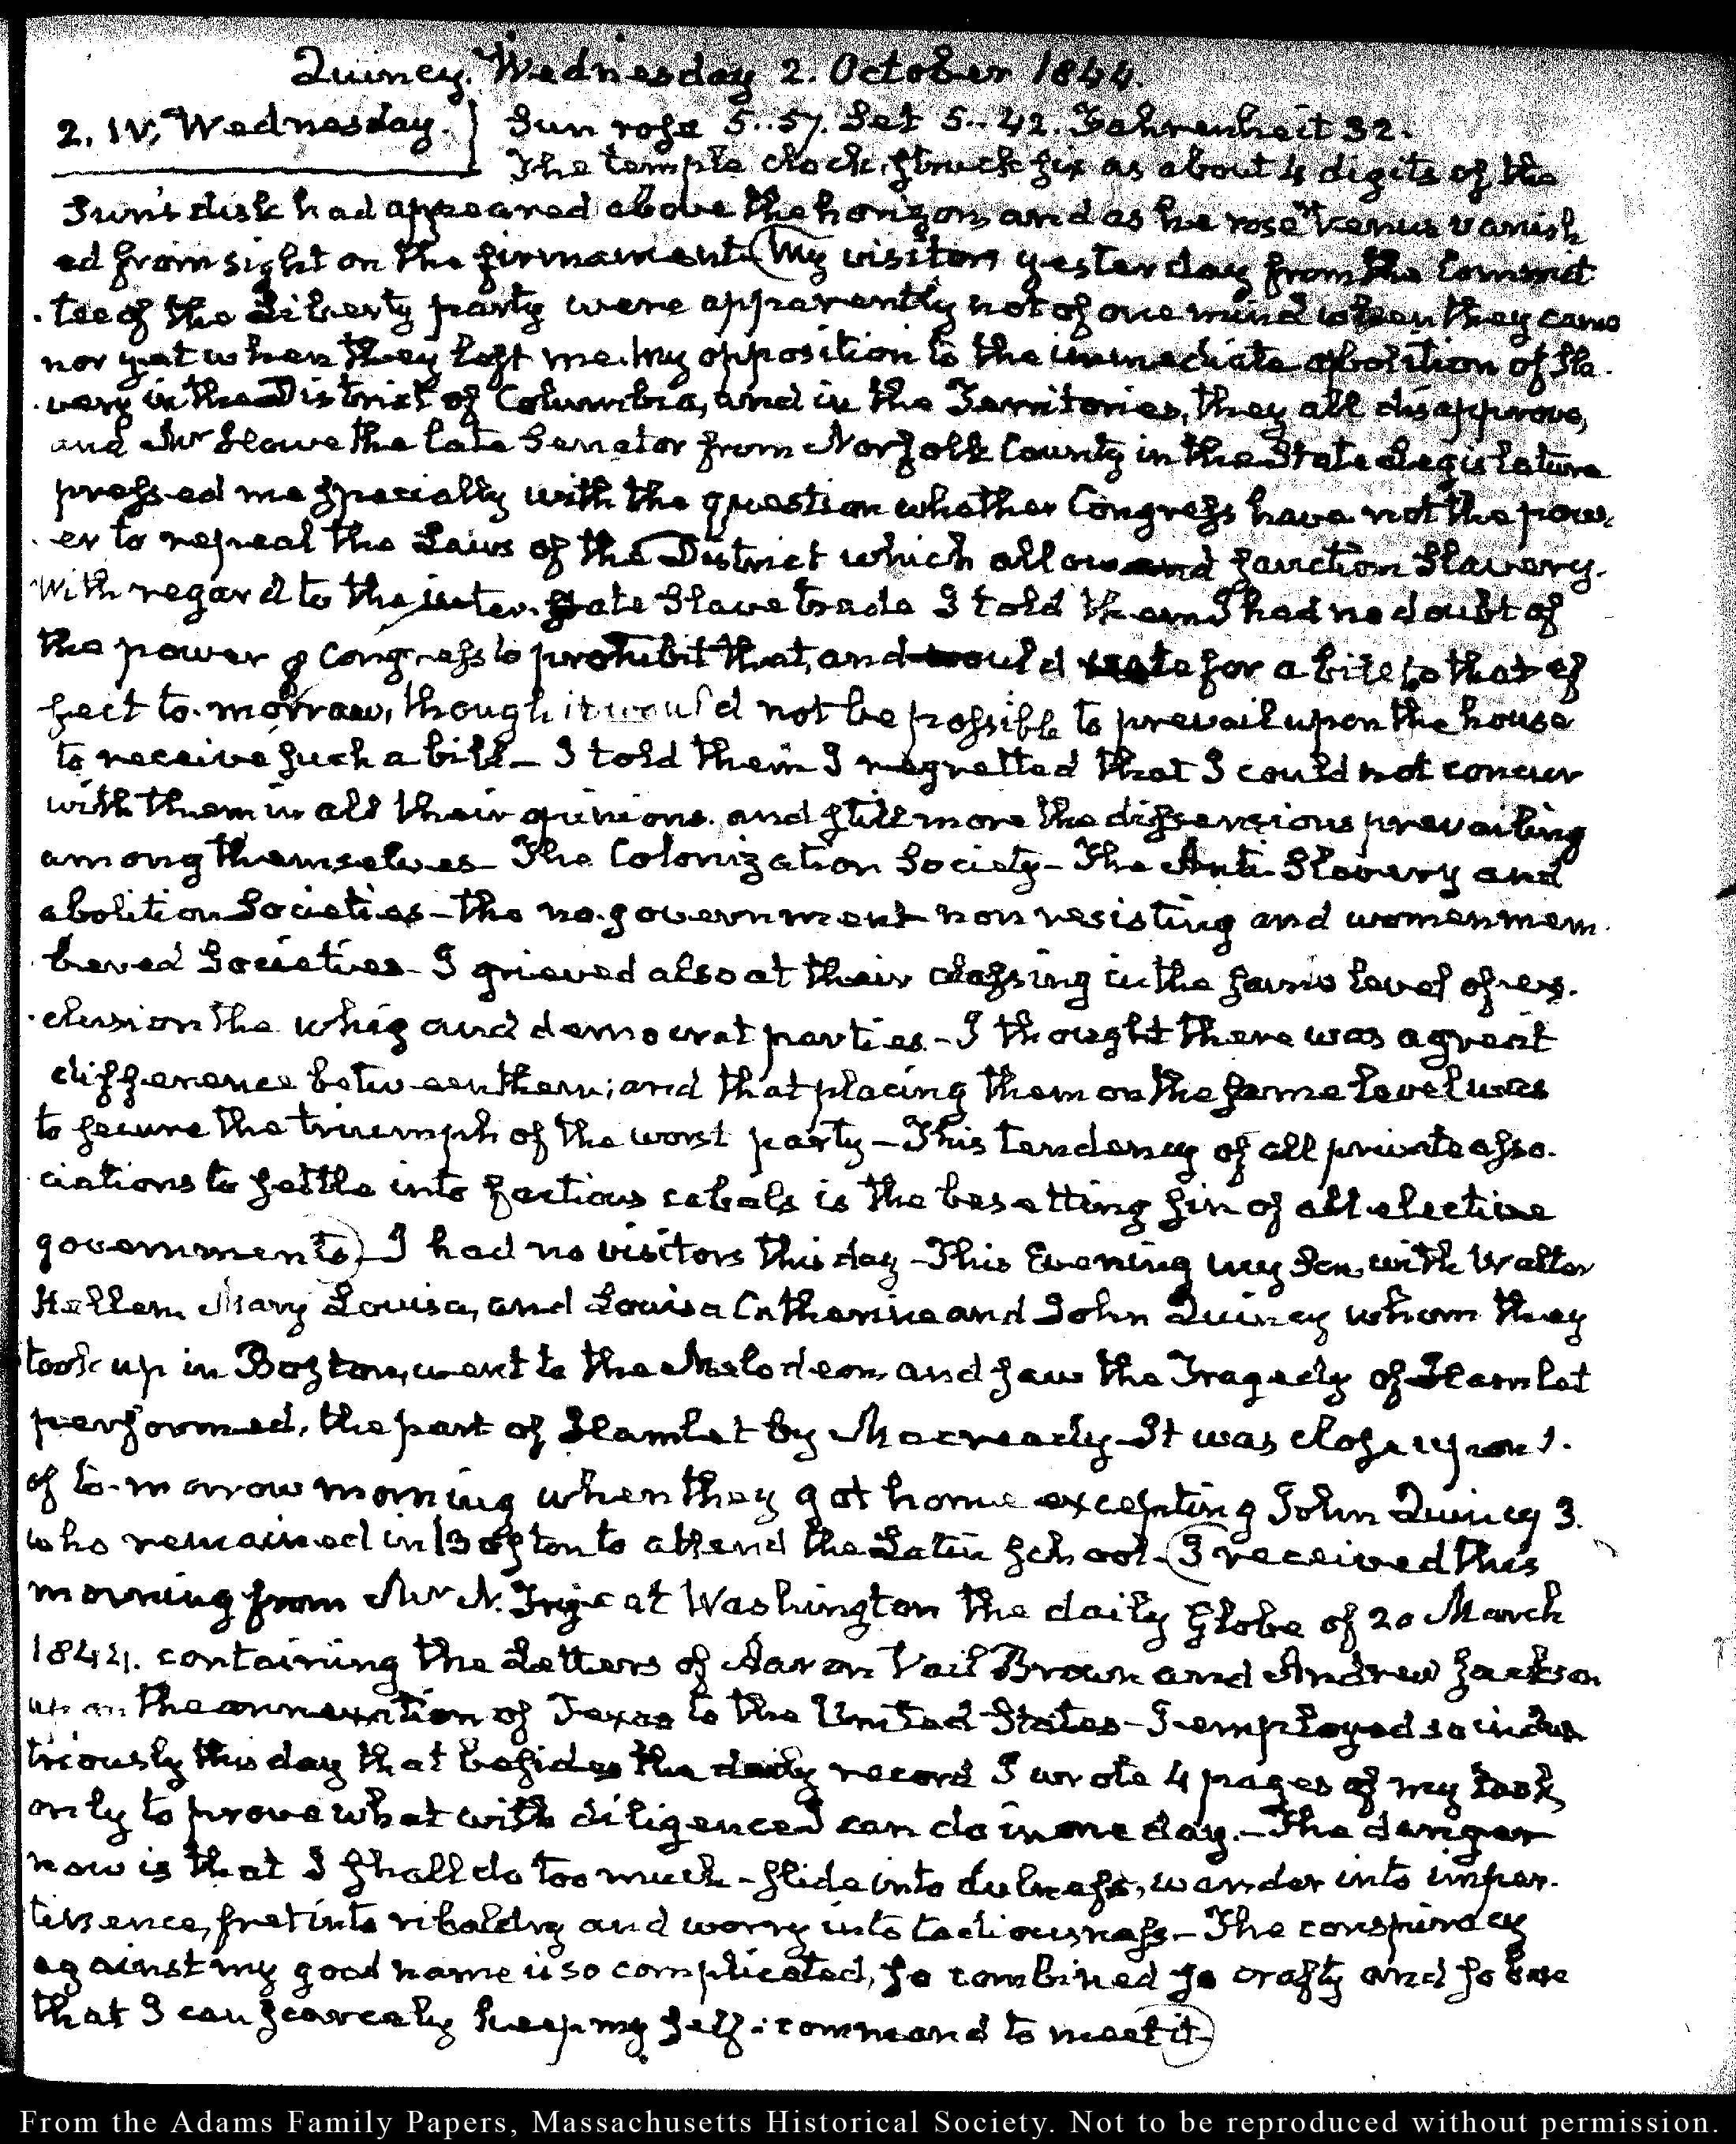 Quincy. Wednesday 2. October 1844.
2. IV. Wednesday. } Sun rose 5..57. Set 5..42. Fahrenheit 32.
The temple clock, struck six as about 4 digits of the
Sun's disk had appeared above the horizon, and as he rose Venus vanish
ed from sight on the firmament (My visitors yesterday from the Commit
-tee of the Liberty party were apparently not of one mind when they came
nor yet when they left me. My opposition to the immediate abolition of Sla-
-very in the District of Columbia, and in the Territories, they all disapprove,
and Mr Howe the late Senator from Norfolk County in the State Legislature
pressed me specially with the question whether Congress have not the pow-
-er to repeal the Laws of the District which allow and sanction Slavery.
With regard to the inter-State Slave trade I told them I had no doubt of
the power of Congress to prohibit that, and would vote for a bill to that ef
fect to-morrow, though it would not be possible to prevail upon the house
to receive such a bill - I told them I regretted that I could not concur
with them in all their opinions, and still more the dissensions prevailing
among themselves - The Colonization Society - The Anti-Slavery and
abolition Societies - the no-government non resisting and women mem-
-bered Societies - I grieved also at their classing in the same level of ex-
-clusion the whig and democrat parties - I thought there was a great
difference between them; and that placing them on the same level was
to secure the triumph of the worst party - This tendency of all private asso-
-ciations to settle into factious cabals is the besetting sin of all elective
governments) I had no visitors this day - This Evening my Son, with Walter
Hellen, Mary Louisa, and Louisa Catherine and John Quincy whom they
took up in Boston, went to the Melodeon, and saw the Tragedy of Hamlet
performed, the part of Hamlet by Macready - It was close upon 1.
of to-morrow morning when they got home excepting John Quincy 3.
who remained in Boston to attend the Latin school - (I received this
morning from Mr N. Trist at Washington the daily Globe of 20 March
1844. containing the Letters of Aaron Vail Brown and Andrew Jackson
upon the annexation of Texas to the United States - I employed so indus
triously this day that besides the daily record I wrote 4 pages of my task,
only to prove what with diligence I can do in one day. - The danger
now is that I shall do too much - slide into dulness, wander into imper-
tinence, fret into ribaldry and worry into tediousness - The conspiracy
against my good name is so complicated, so combined so crafty and so base
that I can scarcely keep my self-command to meet it -)
From the Adams Family Papers, Massachusetts Historical Society. Not to be reproduced without permission.